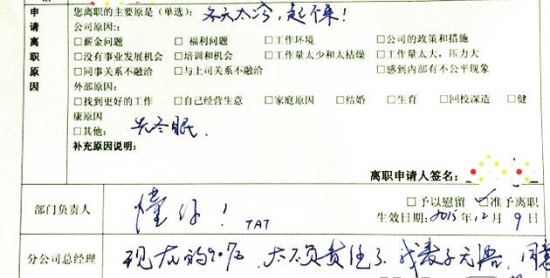 申请离职原因
您离职的主要原是（单选）： 冬天太冷，起不来！
公司原因：:
□薪金问题 □ 福利问题 □工作环境 □公司的政策和措施
□没有事业发展机会 □培训和机会 □工作量太少和太枯燥 □工作量太大，压力大
□同事关系不融洽 □与上司关系不融洽 □感到内部有不公平现象
外部原因：
□找到更好的工作 □自己经营生意 □家庭原因 □结婚 □生育 □回校深造 □健
康原因
□其他: 先冬眠。
补充原因说明：
离职申请人签名：
部门负责人 懂你！ TAT
□予以慰留 □准予离职
生效日期：2015年12月9日
分公司总经理 现在的90后，太不负责任了，我数子无语，